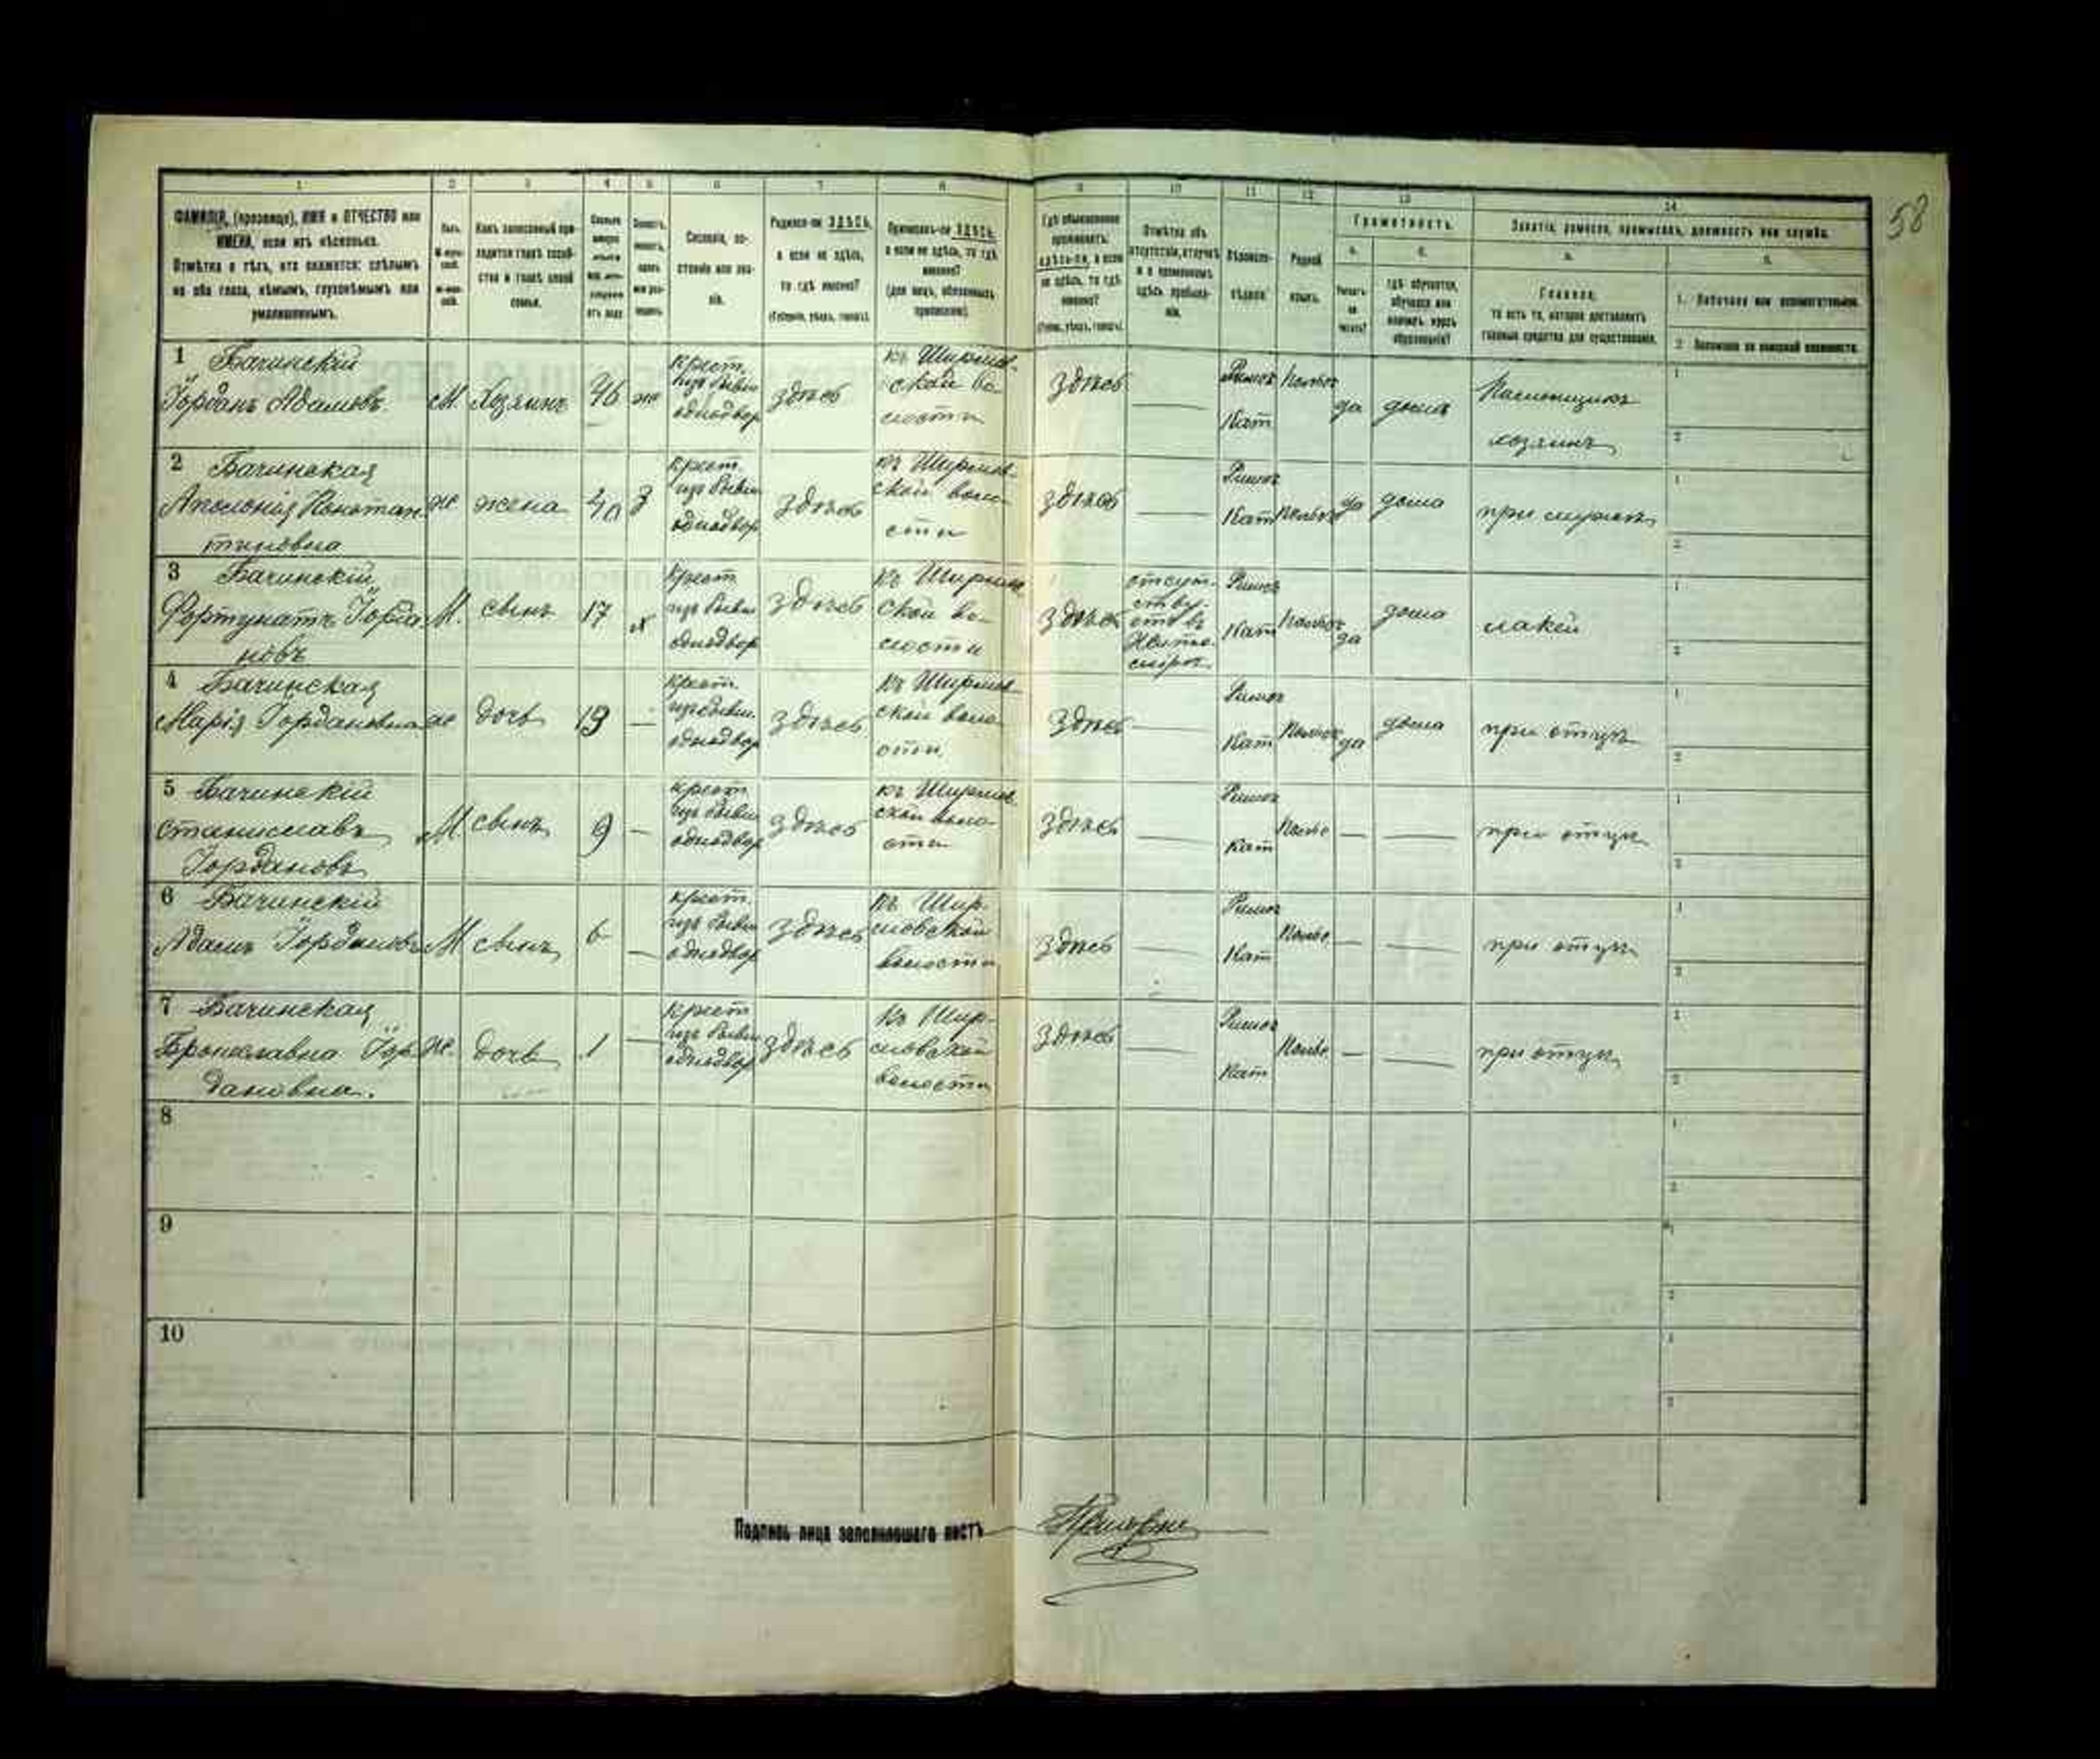 58
1 2 3 4 5 6 7 8 9 10 11 12 13 14
ФАМИЛІЯ, (прозвище), ИМЯ и ОТЧЕСТВО или
ИМЕНА, если ихъ нѣсколько.
Отмѣтка о тѣхъ, кто окажется: слѣпымъ
на оба глаза, нѣмымъ, глухонѣмымъ или
умалишеннымъ.
Полъ.
Какъ записанный при-
ходится главѣ хозяй-
ства и главѣ своей
семьи.
Сословіе, со-
стояніе или зва-
ніе.
Родился-ли ЗДѢСЬ,
а если не здѣсь,
то гдѣ именно?
(Губернія, уѣздъ, городъ).
Приписанъ-ли ЗДѢСЬ,
а если не здѣсь, то гдѣ
именно?
(для лицъ, обязанныхъ
припиской).
Гдѣ обыкновенно
проживаетъ:
здѣсь-ли, а если
не здѣсь, то гдѣ
именно?
(Губерн., уѣздъ, городъ).
Отмѣтка объ
отсутствіи, отлучкѣ
и о временномъ
здѣсь пребыва-
ніи.
Вѣроиспо-
вѣданіе.
Родной
языкъ.
Грамотность.
а. б.
Умѣетъ
ли
читать?
гдѣ обучается,
обучался или
кончилъ курсъ
образованія?
Занятіе, ремесло, промыселъ, должность или служба.
а. б.
Главное,
то есть то, которое доставляетъ
главныя средства для существованія.
1. Побочное или вспомогательное.
2. Положеніе по воинской повинности.
1 Бачинскій
Іорданъ Адамовъ
М. Хозяинъ 46 ж
крест.
изъ бывш
однодвор
здѣсь
къ Ширмов-
ской во-
лости
здѣсь —
Римск
Кат
Польск
да дома
хозяинъ
2 Бачинская
Аполонія Констан
тиновна
же жена 40 З
крест.
изъ бывш
однодвор
здѣсь
къ Ширмов-
ской воло-
сти
здѣсь —
Римск
Кат
Польск
да дома
при мужѣ
3 Бачинскій
Фортунатъ Іорда
новъ
М. сынъ 17 х
крест
изъ бывш
однодвор
здѣсь
къ Ширмов
ской во-
лости
здѣсь
отсут-
ству-
етъ въ
Жито-
мірѣ
Римск
Кат
Польск
да дома
лакей
4 Бачинская
Марія Іордановна
же дочь 13 —
крест.
изъ бывш.
однодвор
здѣсь
къ Ширмов-
ской воло
сти
здѣсь —
Римск
Кат
Польск
да дома
при отцѣ
5 Бачинскій
Станиславъ
Іордановъ
М сынъ 9 —
крест
изъ бывш
однодвор
здѣсь
къ Ширмов
ской воло-
сти
здѣсь —
Римск
Кат
Польс — —
при отцѣ
6 Бачинскій
Адамъ Іордановъ
М сынъ 6 —
крест.
изъ бывш
однодвор
здѣсь
къ Шир-
мовской
волости
здѣсь —
Римск
Кат
Польс — —
при отцѣ
7 Бачинская
Брониславна Іор
дановна.
же. дочь 1 —
крест
изъ бывш
однодвор
здѣсь
къ Шир-
мовской
волости
здѣсь —
Римск
Кат
Польс. — —
при отцѣ
8
9
10
Подпись лица заполнившаго листъ